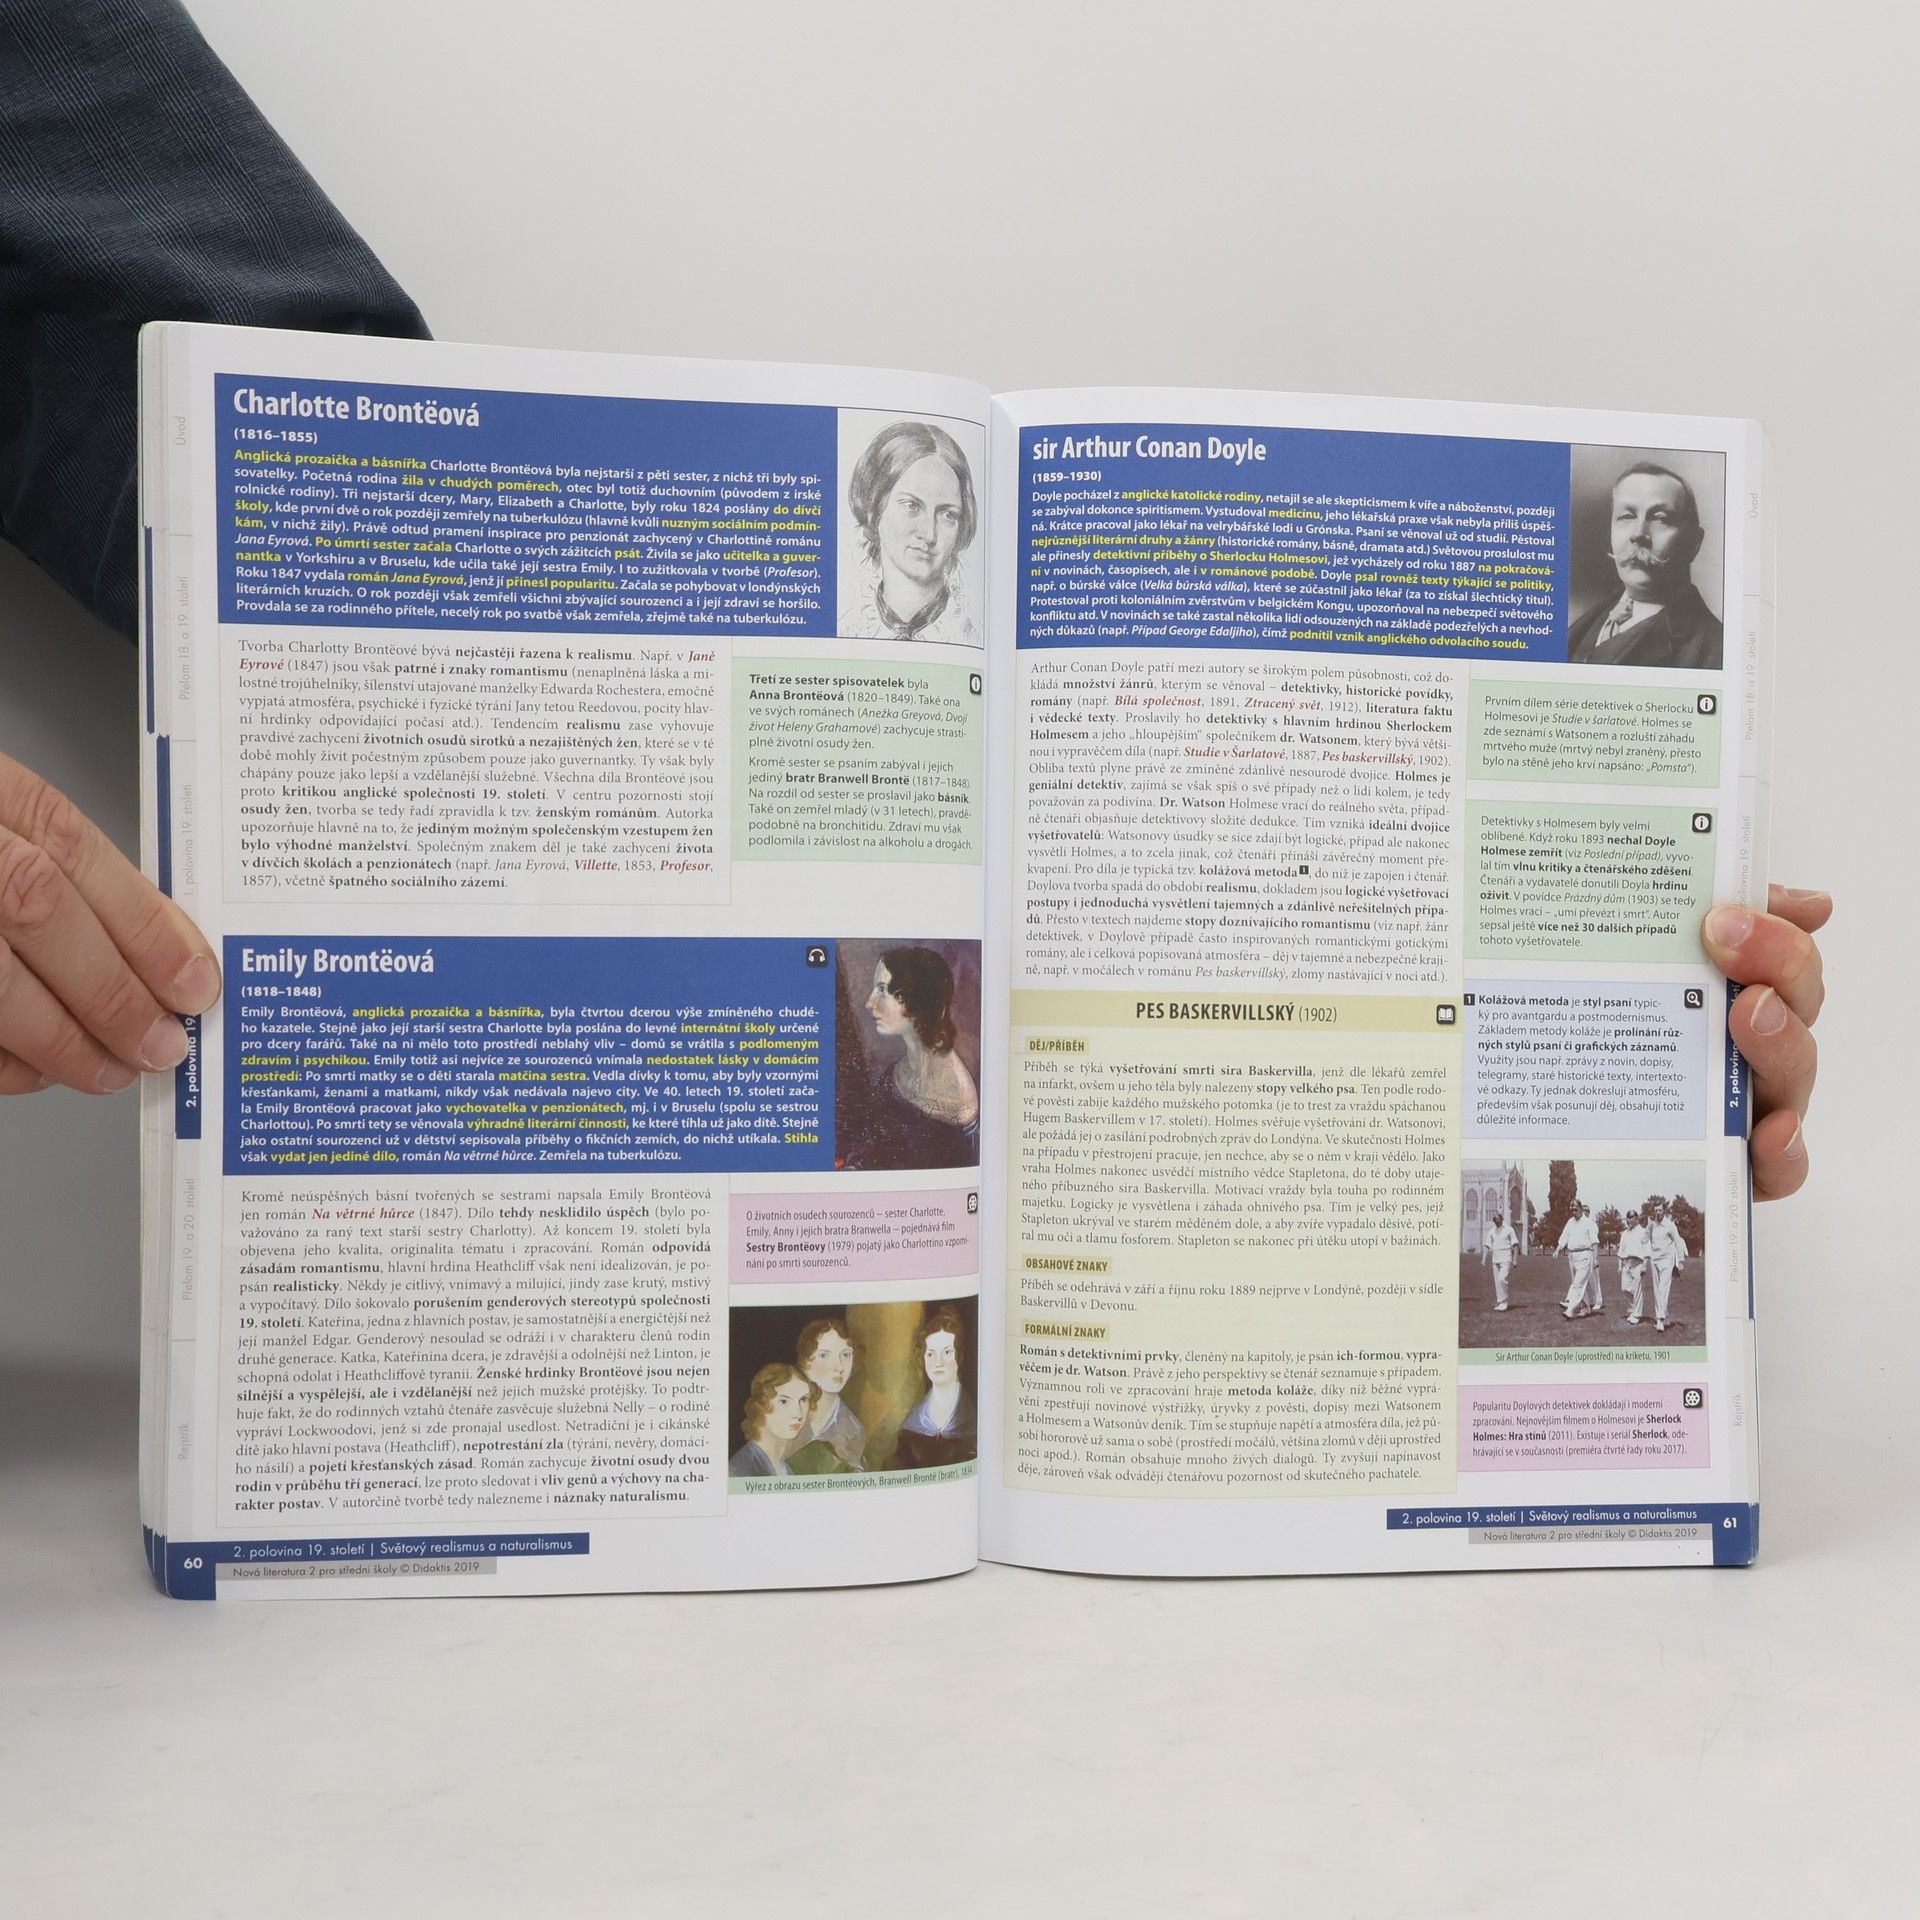 Charlotte Brontëová
(1816–1855)
Anglická prozaička a básnířka Charlotte Brontëová byla nejstarší z pěti sester, z nichž tři byly spi-
sovatelky. Početná rodina žila v chudých poměrech, otec byl totiž duchovním (původem z irské
rolnické rodiny). Tři nejstarší dcery, Mary, Elizabeth a Charlotte, byly roku 1824 poslány do dívčí
školy, kde první dvě o rok později zemřely na tuberkulózu (hlavně kvůli nuzným sociálním podmín-
kám, v nichž žily). Právě odtud pramení inspirace pro penzionát zachycený v Charlottině románu
Jana Eyrová. Po úmrtí sester začala Charlotte o svých zážitcích psát. Živila se jako učitelka a guver-
nantka v Yorkshiru a v Bruselu, kde učila také její sestra Emily. I to zužitkovala v tvorbě (Profesor).
Roku 1847 vydala román Jana Eyrová, jenž jí přinesl popularitu. Začala se pohybovat v londýnských
literárních kruzích. O rok později však zemřeli všichni zbývající sourozenci a i její zdraví se horšilo.
Provdala se za rodinného přítele, necelý rok po svatbě však zemřela, zřejmě také na tuberkulózu.
Tvorba Charlotty Brontëové bývá nejčastěji řazena k realismu. Např. v Janě
Eyrové (1847) jsou však patrné i znaky romantismu (nenaplněná láska a mi-
lostné trojúhelníky, šílenství utajované manželky Edwarda Rochestera, emočně
vypjatá atmosféra, psychické i fyzické týrání Jany tetou Reedovou, pocity hlav-
ní hrdinky odpovídající počasí atd.). Tendencím realismu zase vyhovuje
pravdivé zachycení životních osudů sirotků a nezajištěných žen, které se v té
době mohly živit počestným způsobem pouze jako guvernantky. Ty však byly
chápány pouze jako lepší a vzdělanější služebné. Všechna díla Brontëové jsou
proto kritikou anglické společnosti 19. století. V centru pozornosti stojí
osudy žen, tvorba se tedy řadí zpravidla k tzv. ženským románům. Autorka
upozorňuje hlavně na to, že jediným možným společenským vzestupem žen
bylo výhodné manželství. Společným znakem děl je také zachycení života
v dívčích školách a penzionátech (např. Jana Eyrová, Villette, 1853, Profesor,
1857), včetně špatného sociálního zázemí.
Třetí ze sester spisovatelek byla
Anna Brontëová (1820–1849). Také ona
ve svých románech (Anežka Greyová, Dvojí
život Heleny Grahamové) zachycuje strasti-
plné životní osudy žen.
Kromě sester se psaním zabýval i jejich
jediný bratr Branwell Brontë (1817–1848).
Na rozdíl od sester se proslavil jako básník.
Také on zemřel mladý (v 31 letech), pravdě-
podobně na bronchitidu. Zdraví mu však
podlomila i závislost na alkoholu a drogách.
Emily Brontëová
(1818–1848)
Emily Brontëová, anglická prozaička a básnířka, byla čtvrtou dcerou výše zmíněného chudé-
ho kazatele. Stejně jako její starší sestra Charlotte byla poslána do levné internátní školy určené
pro dcery farářů. Také na ni mělo toto prostředí neblahý vliv – domů se vrátila s podlomeným
zdravím i psychikou. Emily totiž asi nejvíce ze sourozenců vnímala nedostatek lásky v domácím
prostředí: Po smrti matky se o děti starala matčina sestra. Vedla dívky k tomu, aby byly vzornými
křesťankami, ženami a matkami, nikdy však nedávala najevo city. Ve 40. letech 19. století zača-
la Emily Brontëová pracovat jako vychovatelka v penzionátech, mj. i v Bruselu (spolu se sestrou
Charlottou). Po smrti tety se věnovala výhradně literární činnosti, ke které tíhla už jako dítě. Stejně
jako ostatní sourozenci už v dětství sepisovala příběhy o fikčních zemích, do nichž utíkala. Stihla
však vydat jen jediné dílo, román Na větrné hůrce. Zemřela na tuberkulózu.
Kromě neúspěšných básní tvořených se sestrami napsala Emily Brontëová
jen román Na větrné hůrce (1847). Dílo tehdy nesklidilo úspěch (bylo po-
važováno za raný text starší sestry Charlotty). Až koncem 19. století byla
objevena jeho kvalita, originalita tématu i zpracování. Román odpovídá
zásadám romantismu, hlavní hrdina Heathcliff však není idealizován, je po-
psán realisticky. Někdy je citlivý, vnímavý a milující, jindy zase krutý, mstivý
a vypočítavý. Dílo šokovalo porušením genderových stereotypů společnosti
19. století. Kateřina, jedna z hlavních postav, je samostatnější a energičtější než
její manžel Edgar. Genderový nesoulad se odráží i v charakteru členů rodin
druhé generace. Katka, Kateřinina dcera, je zdravější a odolnější než Linton, je
schopná odolat i Heathcliffově tyranii. Ženské hrdinky Brontëové jsou nejen
silnější a vyspělejší, ale i vzdělanější než jejich mužské protějšky. To podtr-
huje fakt, že do rodinných vztahů čtenáře zasvěcuje služebná Nelly – o rodině
vypráví Lockwoodovi, jenž si zde pronajal usedlost. Netradiční je i cikánské
dítě jako hlavní postava (Heathcliff), nepotrestání zla (týrání, nevěry, domácí-
ho násilí) a pojetí křesťanských zásad. Román zachycuje životní osudy dvou
rodin v průběhu tří generací, lze proto sledovat i vliv genů a výchovy na cha-
rakter postav. V autorčině tvorbě tedy nalezneme i náznaky naturalismu.
O životních osudech sourozenců – sester Charlotte,
Emily, Anny i jejich bratra Branwella – pojednává film
Sestry Brontëovy (1979) pojatý jako Charlottino vzpomí-
nání po smrti sourozenců.
Výřez z obrazu sester Brontëových, Branwell Brontë (bratr), 1834
60
2. polovina 19. století | Světový realismus a naturalismus
Nová literatura 2 pro střední školy © Didaktis 2019
Úvod
Přelom 18. a 19. století
1. polovina 19. století
2. polovina 19.
Přelom 19. a 20. století
Rejstřík
sir Arthur Conan Doyle
(1859–1930)
Doyle pocházel z anglické katolické rodiny, netajil se ale skepticismem k víře a náboženství, později
se zabýval dokonce spiritismem. Vystudoval medicínu, jeho lékařská praxe však nebyla příliš úspěš-
ná. Krátce pracoval jako lékař na velrybářské lodi u Grónska. Psaní se věnoval už od studií. Pěstoval
nejrůznější literární druhy a žánry (historické romány, básně, dramata atd.) Světovou proslulost mu
ale přinesly detektivní příběhy o Sherlocku Holmesovi, jež vycházely od roku 1887 na pokračová-
ní v novinách, časopisech, ale i v románové podobě. Doyle psal rovněž texty týkající se politiky,
např. o búrské válce (Velká búrská válka), které se zúčastnil jako lékař (za to získal šlechtický titul).
Protestoval proti koloniálním zvěrstvům v belgickém Kongu, upozorňoval na nebezpečí světového
konfliktu atd. V novinách se také zastal několika lidí odsouzených na základě podezřelých a nevhod-
ných důkazů (např. Případ George Edaljiho), čímž podnítil vznik anglického odvolacího soudu.
Arthur Conan Doyle patří mezi autory se širokým polem působnosti, což do-
kládá množství žánrů, kterým se věnoval – detektivky, historické povídky,
romány (např. Bílá společnost, 1891, Ztracený svět, 1912), literatura faktu
i vědecké texty. Proslavily ho detektivky s hlavním hrdinou Sherlockem
Holmesem a jeho „hloupějším“ společníkem dr. Watsonem, který bývá větši-
nou i vypravěčem díla (např. Studie v Šarlatové, 1887, Pes baskervillský, 1902).
Obliba textů plyne právě ze zmíněné zdánlivě nesourodé dvojice. Holmes je
geniální detektiv, zajímá se však spíš o své případy než o lidi kolem, je tedy
považován za podivína. Dr. Watson Holmese vrací do reálného světa, případ-
ně čtenáři objasňuje detektivovy složité dedukce. Tím vzniká ideální dvojice
vyšetřovatelů: Watsonovy úsudky se sice zdají být logické, případ ale nakonec
vysvětlí Holmes, a to zcela jinak, což čtenáři přináší závěrečný moment pře-
kvapení. Pro díla je typická tzv. kolážová metoda 1, do níž je zapojen i čtenář.
Doylova tvorba spadá do období realismu, dokladem jsou logické vyšetřovací
postupy i jednoduchá vysvětlení tajemných a zdánlivě neřešitelných přípa-
dů. Přesto v textech najdeme stopy doznívajícího romantismu (viz např. žánr
detektivek, v Doylově případě často inspirovaných romantickými gotickými
romány, ale i celková popisovaná atmosféra – děj v tajemné a nebezpečné kraji-
ně, např. v močálech v románu Pes baskervillský, zlomy nastávající v noci atd.).
PES BASKERVILLSKÝ (1902)
DĚJ/PŘÍBĚH
Příběh se týká vyšetřování smrti sira Baskervilla, jenž dle lékařů zemřel
na infarkt, ovšem u jeho těla byly nalezeny stopy velkého psa. Ten podle rodo-
vé pověsti zabije každého mužského potomka (je to trest za vraždu spáchanou
Hugem Baskervillem v 17. století). Holmes svěřuje vyšetřování dr. Watsonovi,
ale požádá jej o zasílání podrobných zpráv do Londýna. Ve skutečnosti Holmes
na případu v přestrojení pracuje, jen nechce, aby se o něm v kraji vědělo. Jako
vraha Holmes nakonec usvědčí místního vědce Stapletona, do té doby utaje-
ného příbuzného sira Baskervilla. Motivací vraždy byla touha po rodinném
majetku. Logicky je vysvětlena i záhada ohnivého psa. Tím je velký pes, jejž
Stapleton ukrýval ve starém měděném dole, a aby zvíře vypadalo děsivě, potí-
ral mu oči a tlamu fosforem. Stapleton se nakonec při útěku utopí v bažinách.
OBSAHOVÉ ZNAKY
Příběh se odehrává v září a říjnu roku 1889 nejprve v Londýně, později v sídle
Baskervillů v Devonu.
FORMÁLNÍ ZNAKY
Román s detektivními prvky, členěný na kapitoly, je psán ich-formou, vypra-
věčem je dr. Watson. Právě z jeho perspektivy se čtenář seznamuje s případem.
Významnou roli ve zpracování hraje metoda koláže, díky níž běžné vyprá-
vění zpestřují novinové výstřižky, úryvky z pověsti, dopisy mezi Watsonem
a Holmesem a Watsonův deník. Tím se stupňuje napětí a atmosféra díla, jež pů-
sobí hororově už sama o sobě (prostředí močálů, většina zlomů v ději uprostřed
noci apod.). Román obsahuje mnoho živých dialogů. Ty zvyšují napínavost
děje, zároveň však odvádějí čtenářovu pozornost od skutečného pachatele.
Prvním dílem série detektivek o Sherlocku
Holmesovi je Studie v šarlatové. Holmes se
zde seznámí s Watsonem a rozluští záhadu
mrtvého muže (mrtvý nebyl zraněný, přesto
bylo na stěně jeho krví napsáno: „Pomsta“).
Detektivky s Holmesem byly velmi
oblíbené. Když roku 1893 nechal Doyle
Holmese zemřít (viz Poslední případ), vyvo-
lal tím vlnu kritiky a čtenářského zděšení.
Čtenáři a vydavatelé donutili Doyla hrdinu
oživit. V povídce Prázdný dům (1903) se tedy
Holmes vrací – „umí převézt i smrt“. Autor
sepsal ještě více než 30 dalších případů
tohoto vyšetřovatele.
1 Kolážová metoda je styl psaní typic-
ký pro avantgardu a postmodernismus.
Základem metody koláže je prolínání růz-
ných stylů psaní či grafických záznamů.
Využity jsou např. zprávy z novin, dopisy,
telegramy, staré historické texty, intertexto-
vé odkazy. Ty jednak dokreslují atmosféru,
především však posunují děj, obsahují totiž
důležité informace.
Sir Arthur Conan Doyle (uprostřed) na kriketu, 1901
Popularitu Doylových detektivek dokládají i moderní
zpracování. Nejnovějším filmem o Holmesovi je Sherlock
Holmes: Hra stínů (2011). Existuje i seriál Sherlock, ode-
hrávající se v současnosti (premiéra čtvrté řady roku 2017).
2. polovina 19. století | Světový realismus a naturalismus
61
Nová literatura 2 pro střední školy © Didaktis 2019
Úvod
Přelom 18. a 19. století
polovina 19. století
2. polovina
Přelom 19. a 20. století
Rejstřík